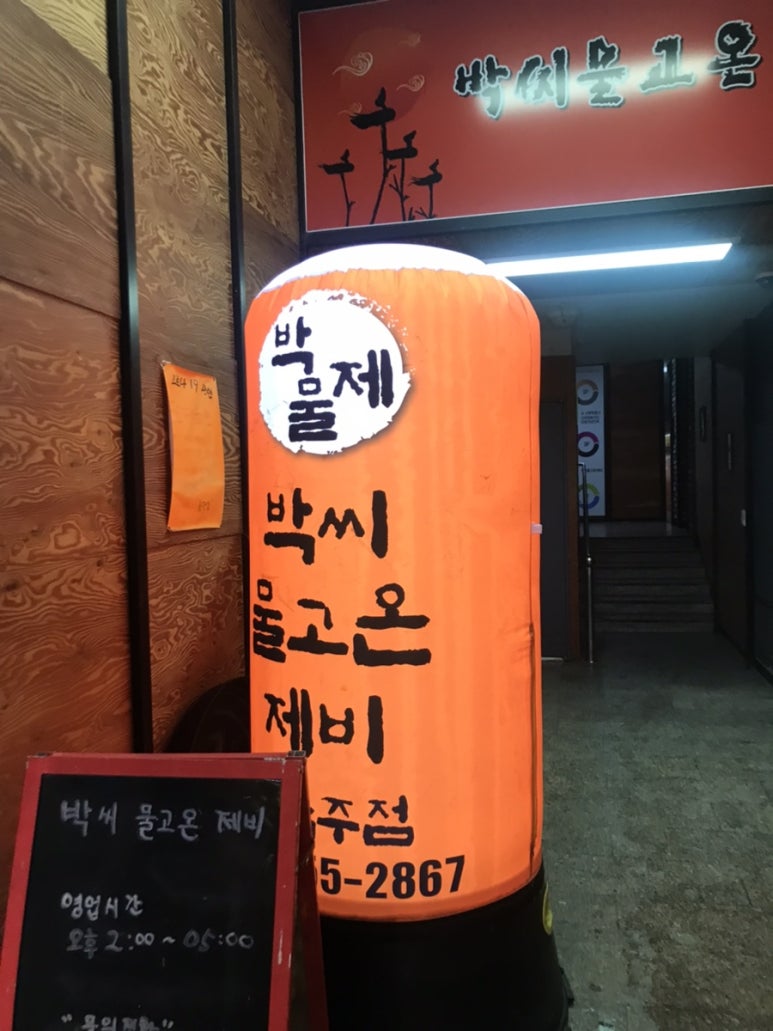 박씨물고온
박물제
박씨
물고온
제비
주점
55-2867
박씨 물고온 제비
영업시간
오후 2:00 ~ 05:00